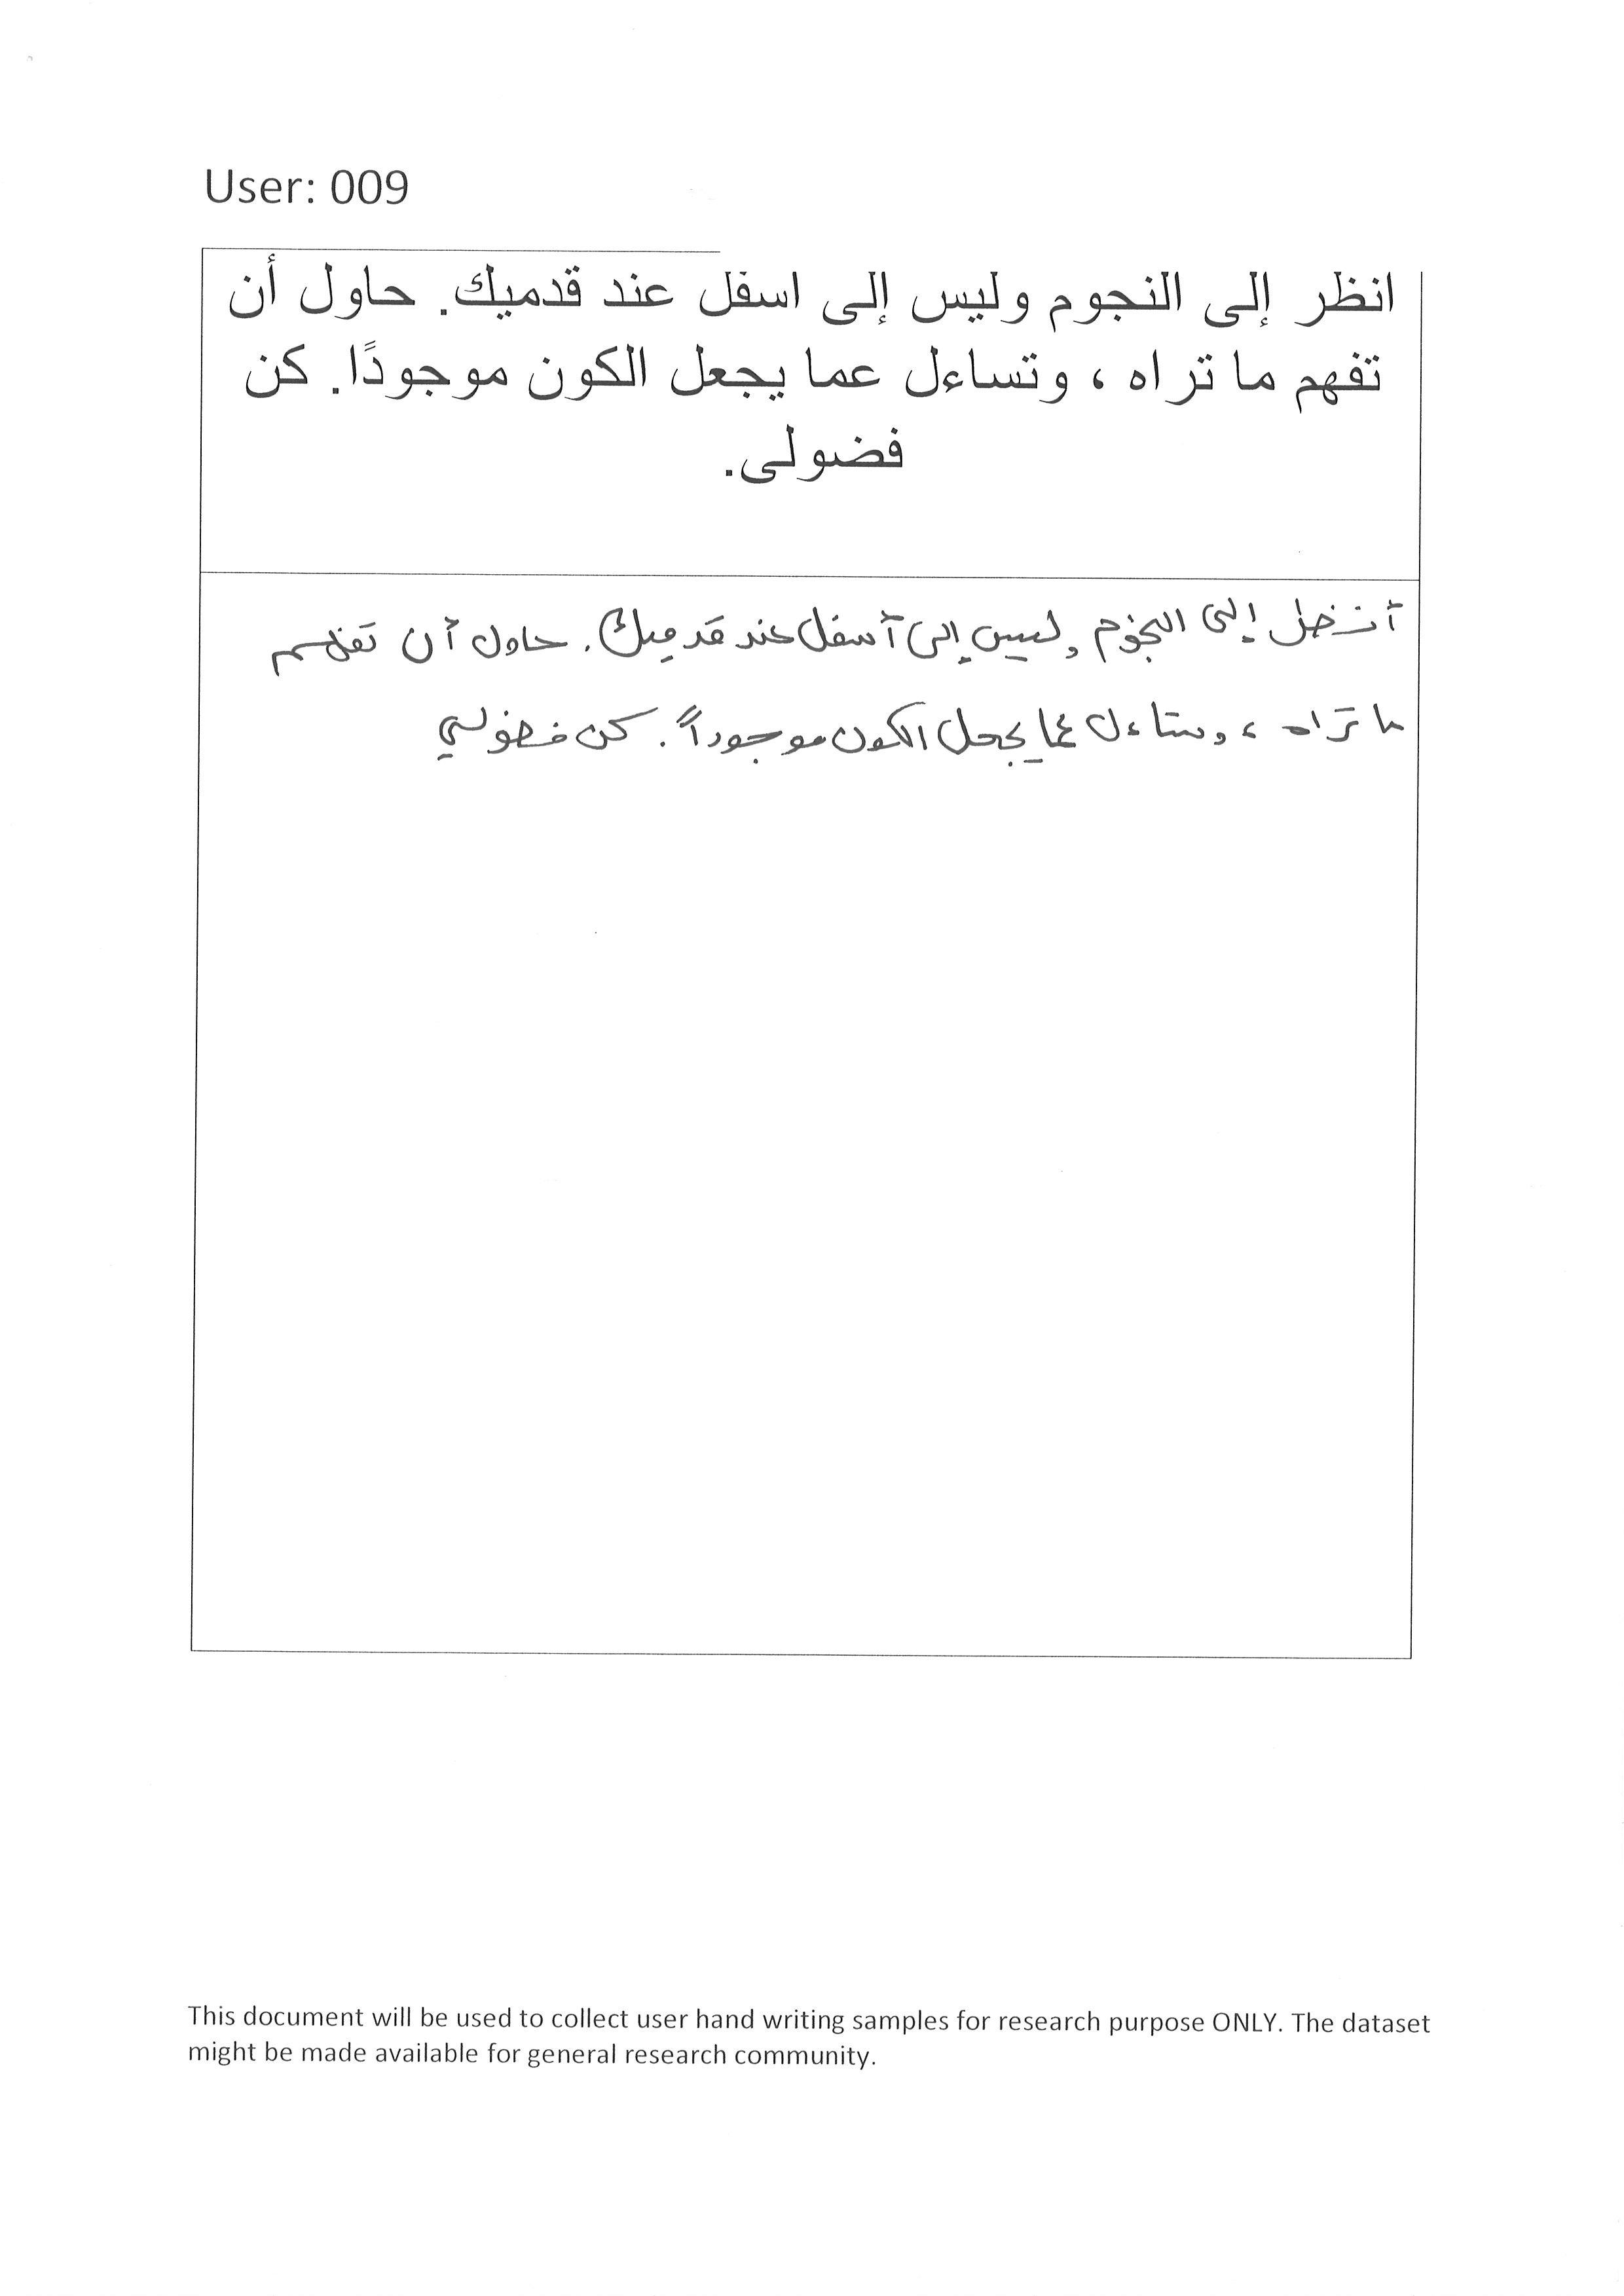 User: 009
انظر إلى النجوم وليس إلى اسفل عند قدميك. حاول أن
تفهم ما تراه ، وتساءل عما يجعل الكون موجودًا. كن
فضولى.
أنظر إلى النجوم وليس إلى أسفل عند قدميك. حاول أن تفهم
ما تراه ، وتساءل عما يجعل الكون موجوداً. كن فضولي
This document will be used to collect user hand writing samples for research purpose ONLY. The dataset
might be made available for general research community.